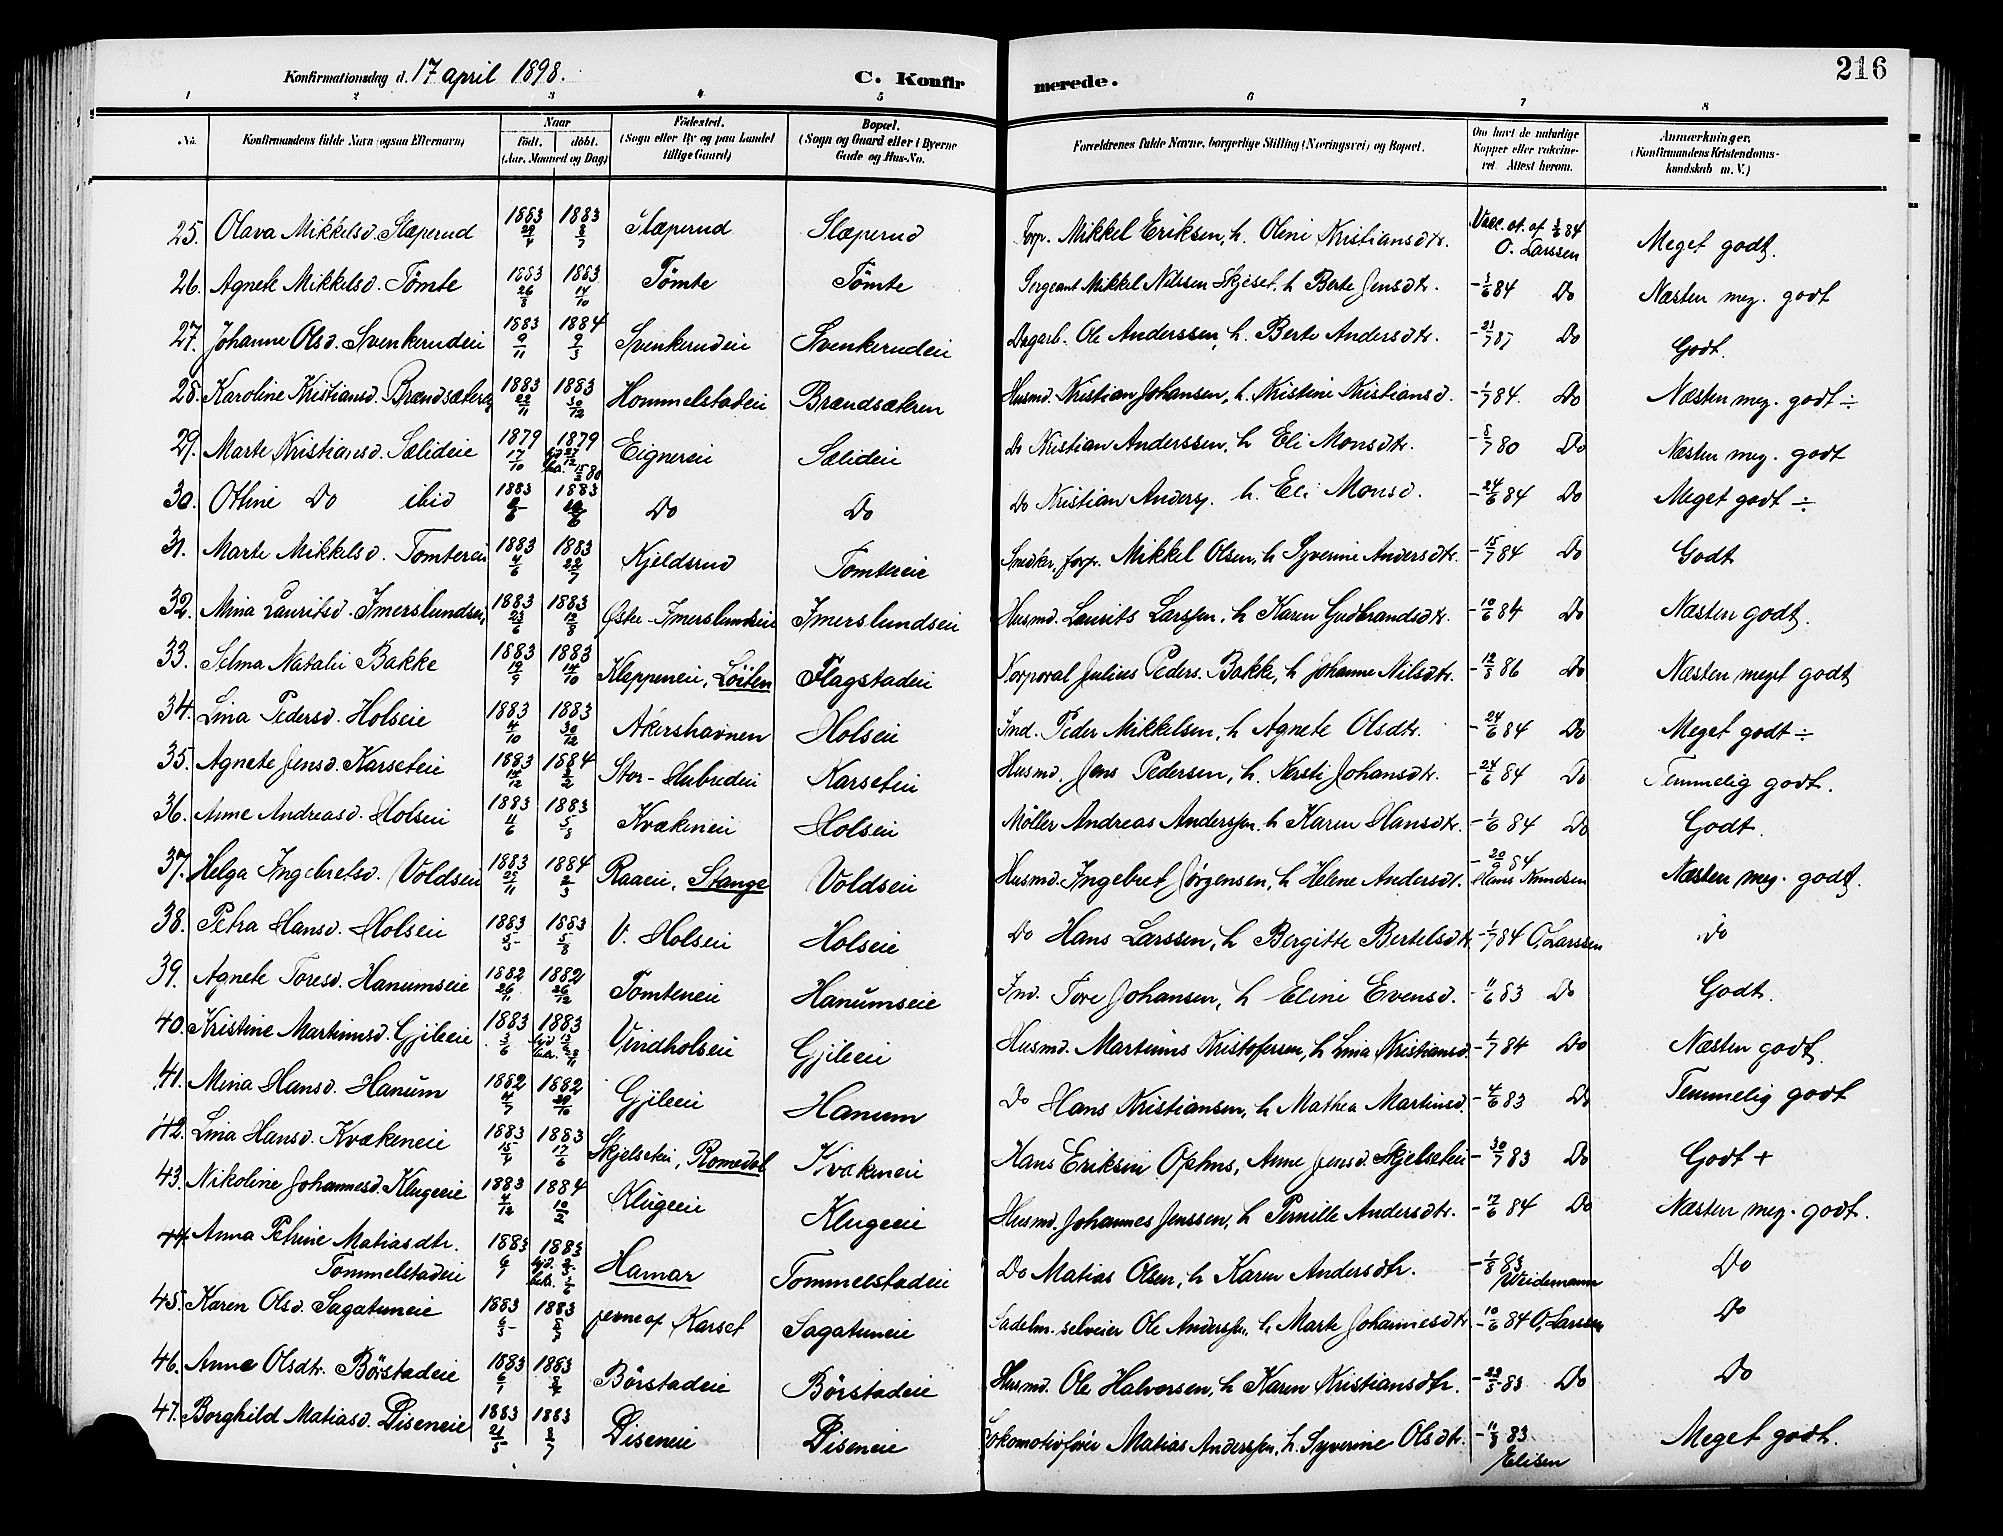 Konfirmationsdag d. 17 april 1898. C. Konfirmerede. 216
1 2 3 4 5 6 7 8
No. Konfirmandens fulde Navn (ogsaa Efternavn) Naar födt. döbt. (Aar, Maaned og Dag) Födested. (Sogn eller By og paa Landet tillige Gaard) Bopæl. (Sogn og Gaard eller i Byerne Gade og Hus-No. Forældrenes fulde Navne, borgerlige Stilling (Næringsvei) og Bopæl. Om havt de naturlige Kopper eller vakcineret Attest herom. Anmærkninger. (Konfirmandens Kristendomskundskab m. V.)
25. Olava Mikkelsd. Slæperud 1883 29/4 1883 8/7 Slæperud Slæperud Forp. Mikkel Eriksen, h. Olini Kristiansdtr. Vacc. at. af 84 O. Larssen Meget godt.
26. Agnete Mikkelsd. Tömte 1883 26/8 1883 14/10 Tömte Tömte Sergeant Mikkel Nilssen Skjeset, h Berte Jensdtr. - 84 Do Næsten meg. godt
27. Johanne Olsd. Svenkerudeie 1883 9/11 1884 9/3 Svenkerudeie Svenkerudeie Dagarb. Ole Anderssen, h. Berte Andersdtr. Do Godt.
28. Karoline Kristiansd. Brændsæteren 1883 22/11 1883 30/12 Hommelstadeie Brændsæteren Husmd. Kristian Johansen, h. Kristine Kristiansd. - 1/7 84. Do Næsten meg. godt ÷
29. Marte Kristiansd. Sælideie 1879 17/10 1879 27/12 Eignereie Sælideie Do Kristian Anderssen, h Eli Monsdtr. - 8/7 80 Do Næsten meg. godt
30. Otline Do ibid 1883 1883 Do Do Do Kristian Anderss. h. Eli Monsd. - 24/6 84 Do Meget godt ÷
31. Marte Mikkelsd. Tomtereie 1883 4/6 1883 22/7 Kjeldsrud Tomtereie Snedker, forp. Mikkel Olsen, h Syverine Andersdtr. - 15/7 84 Do Godt
32. Mina Lauritsd. Imerslundseie 1883 23/6 1883 12/8 Östre-Imerslundseie Imerslundseie Husmd. Laurits Larssen, h Karen Gudbrandsdtr. - 10/6 84 Do Næsten godt.
33. Selma Natalie Bakke 1883 19/9 1883 14/10 Kleppeneie, Löiten Flagstadeie Korporal Julius Peders. Bakke, h Johanne Nilsdtr. - 12/8 86 Do Næsten meget godt
34. Lina Pedersd. Holseie 1883 4/10 1883 30/12 Akershavnen Holseie Ind. Peder Mikkelsen, h Agnete Olsdtr. - 24/6 84 Do Meget godt ÷
35. Agnete Jensd. Karseteie 1883 14/12 1884 2/2 Stor-Hubredeie Karseteie Husmd. Jens Pedersen, h. Kersti Johansdtr. - 24/6 84 Do Temmelig godt.
36. Anne Andreasd. Holseie 1883 11/6 1883 5/8 Kvækeneie Holseie Möller Andreas Anderssen. h Karen Hansdtr. - 1/6 84 Do Godt.
37. Helga Ingebretsd. Voldseie 1883 25/11 1884 2/3 Raaeie, Stange Voldseie Husmd. Ingebret Jörgensen, h Helene Andersdt. - 20/9 84 Hans Knudsen Næsten meg. godt.
38. Petra Hansd. Holseie 1883 1883 5/8 V. Holseie Holseie Do Hans Larssen, h Bergitte Bertelsdtr. - 1/7 84 O. Larssen Do
39. Agnete Toresd. Hanumseie 1882 26/11 1882 26/12 Tomteneie Hanumseie Ind. Tore Johansen, h Eline Evensd. - 11/6 83 Do Godt.
40. Kristine Martinusd. Gjileeie 1883 3/6 1883 Vindholseie Gjileeie Husmd. Martinus Kristofersen, h Lina Kristiansd. - 1/7 84 Do Næsten godt.
41. Mina Hansd. Hanum 1882 4/7 1882 29/10 Gjileeie Hanum Do Hans Kristiansen, h Mathea Martinsd. - 4/6 83 Do Temmelig godt
42. Lina Hansd. Kvækeneie 1883 15/4 1883 17/6 Skjelseteie, Romedal Kvækeneie Hans Eriksen Anne Jensd. Skjelseteie - 30/7 83 Do Godt +
43. Nikoline Johannesd. Klugeeie 1883 4/12 1884 10/2 Klugeeie Klugeeie Husmd. Johannes Jenssen, h Pernille Andersdtr. - 12/6 84 Do Næsten meg. godt.
44. Anna Petrine Matiasdtr.
Tommelstadeie 1883 6/1 1883 Hamar Tommelstadeie Do Matias Olsen, h Karen Andersdtr. - 1/8 83 Weidemann Do
45. Karen Olsd. Sagatuneie 1883 1883 jerneaf Karset Sagatuneie Sadelm. selveier Ole Anderssen, h. Marte Johannesdtr. - 10/6 84 O. Larssen Do
46. Anne Olsdtr. Börstadeie 1883 6/1 1883 Börstadeie Börstadeie Husmd. Ole Halvorsen, h Karen Kristiansdtr. - 83 Do Do
47. Borghild Matiasd. Diseneie 1883 1883 8/7 Diseneie Diseneie Lokomotivförer Matias Anderssen, h. Syverine Olsdtr. - 11/8 83. Elisen Meget godt.